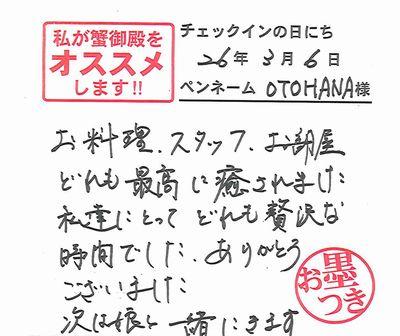 私が蟹御殿を
オススメ
します!!
チェックインの日にち
26年3月6日
ペンネーム OTOHANA様
お料理、スタッフ、お部屋
どれも最高に癒されました
私達にとってどれも贅沢な
時間でした。ありがとう
ございました
次は娘と一緒にきます
お墨つき